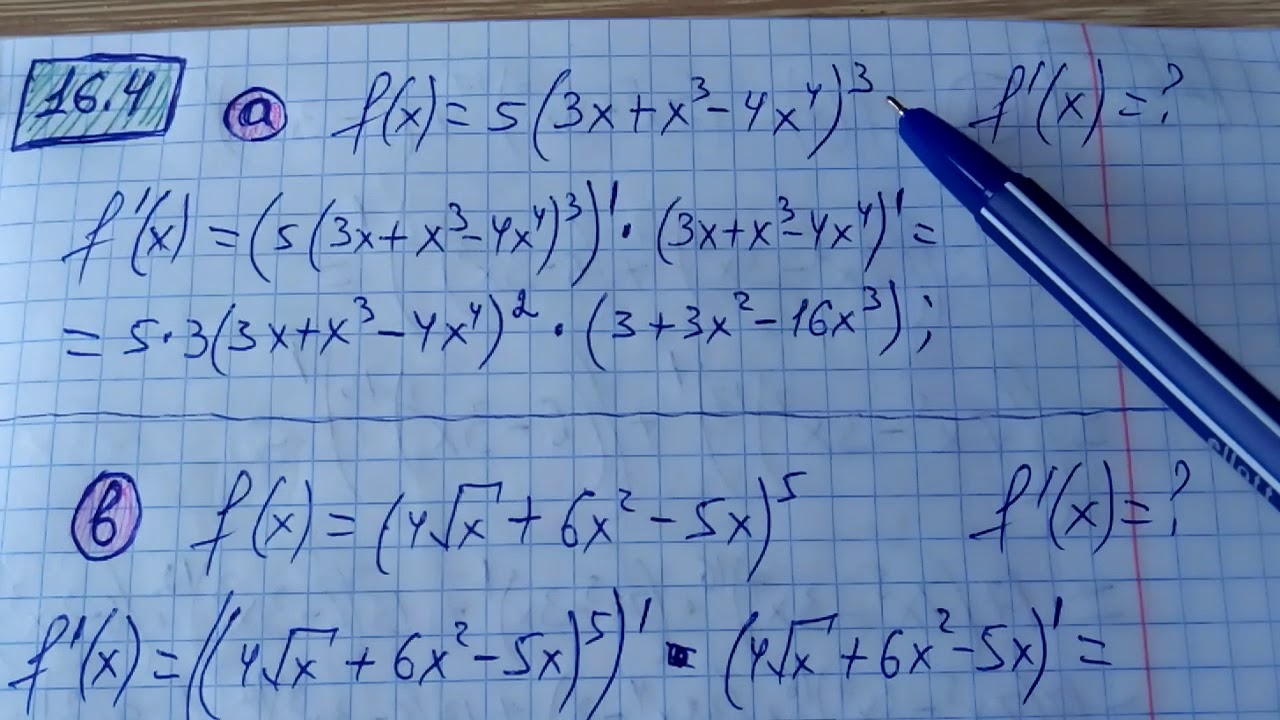 16.4 а f(x) = 5(3x + x³ - 4x⁴)³ f'(x) = ?
f'(x) = (5(3x + x³ - 4x⁴)³)' · (3x + x³ - 4x⁴)' =
= 5·3(3x + x³ - 4x⁴)² · (3 + 3x² - 16x³);
в f(x) = (4√x + 6x² - 5x)⁵ f'(x) = ?
f'(x) = ((4√x + 6x² - 5x)⁵)' · (4√x + 6x² - 5x)' =